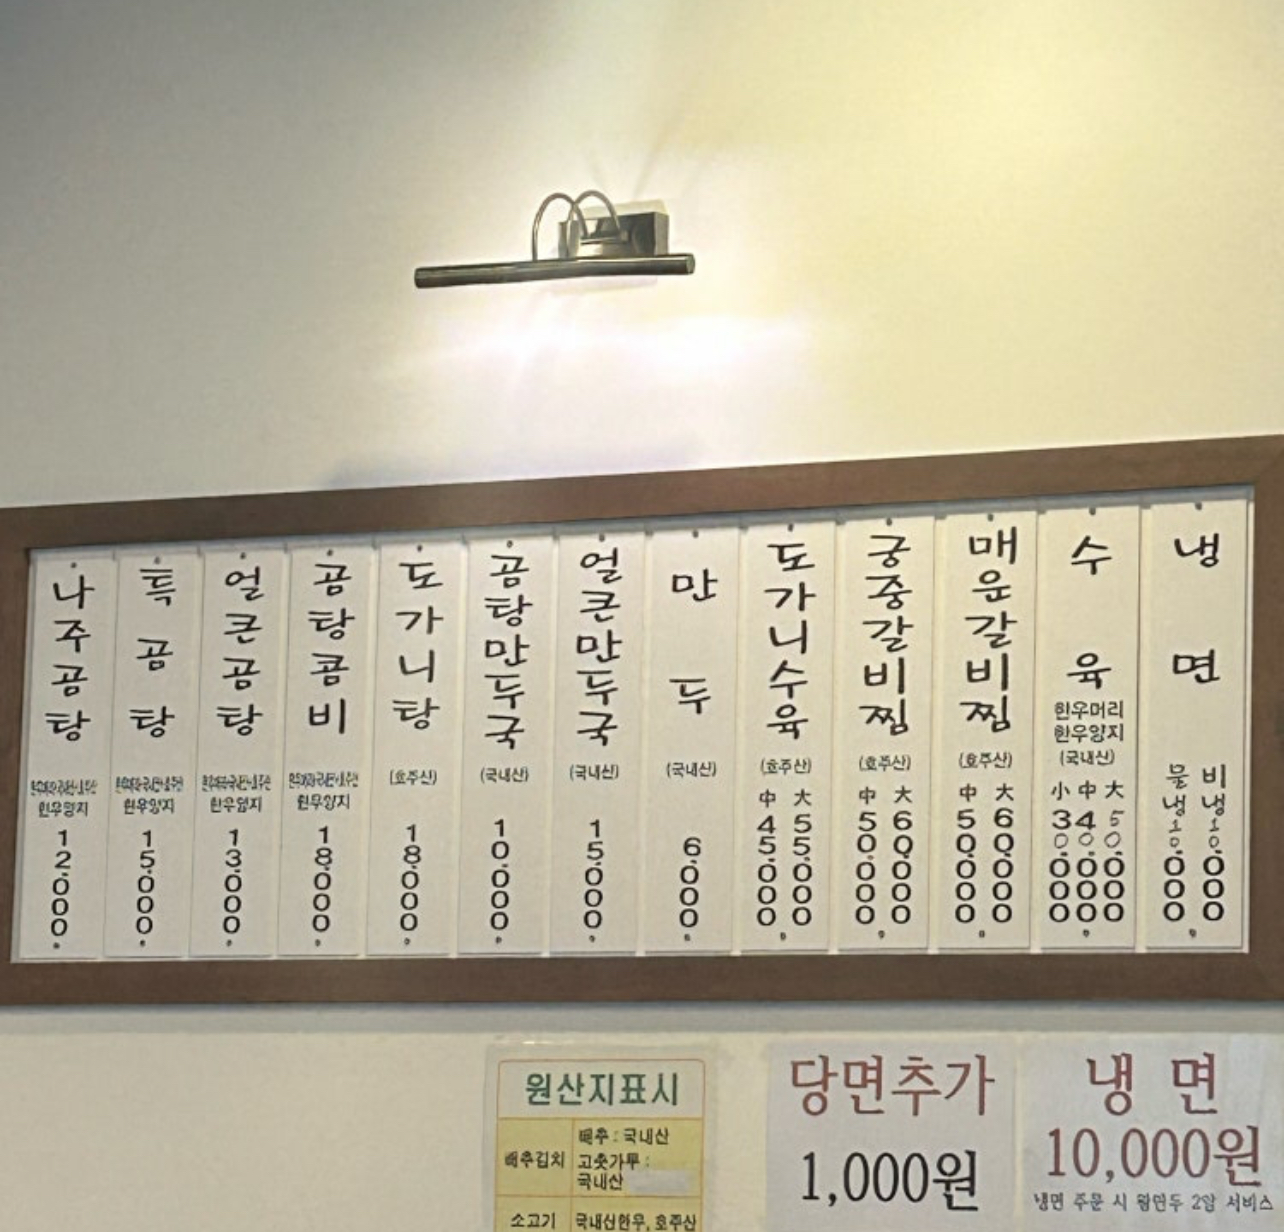 나주곰탕
한우양지
12,000
특곰탕
한우양지
15,000
얼큰곰탕
한우양지
13,000
곰탕콤비
한우양지
18,000
도가니탕
(호주산)
18,000
곰탕만두국
(국내산)
10,000
얼큰만두국
(국내산)
15,000
만두
(국내산)
6,000
도가니수육
(호주산)
中 大
45,000 55,000
궁중갈비찜
(호주산)
中 大
50,000 60,000
매운갈비찜
(호주산)
中 大
50,000 60,000
수육
한우머리
한우양지
(국내산)
小 中 大
30,000 40,000 50,000
냉면
물냉 비냉
10,000 10,000
원산지표시
배추김치
배추 : 국내산
고춧가루 :
국내산
소고기
국내산한우, 호주산
당면추가
1,000원
냉 면
10,000원
냉면 주문 시 왕만두 2알 서비스